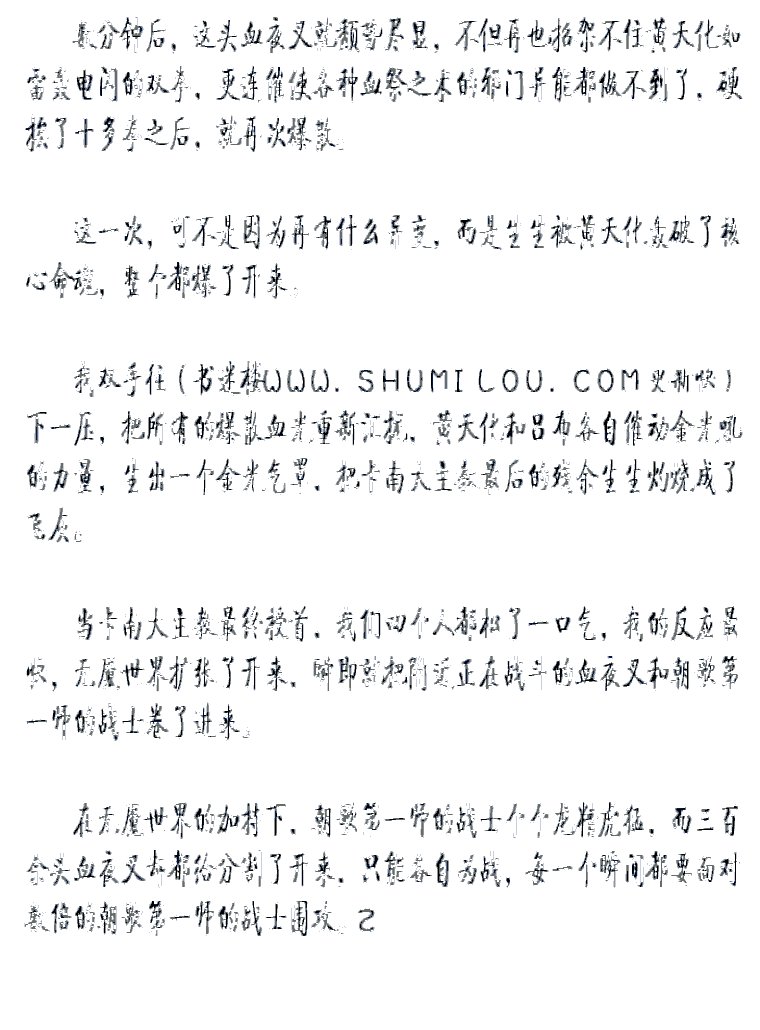 数分钟后，这头血夜叉就颓势尽显，不但再也招架不住黄天化如
雷轰电闪的双拳，更连催使各种血祭之术的邪门异能都做不到了，硬
挨了十多拳之后，就再次爆散。
这一次，可不是因为再有什么异变，而是生生被黄天化轰破了核
心命魂，整个都爆了开来。
我双手往（书迷楼WWW.SHUMILOU.COM更新快）
下一压，把所有的爆散血光重新汇拢，黄天化和吕布各自催动金光吼
的力量，生出一个金光气罩，把卡南大主教最后的残余生生灼烧成了
飞灰。
当卡南大主教最终授首，我们四个人都松了一口气，我的反应最
快，无魇世界扩张了开来，瞬即就把附近正在战斗的血夜叉和朝歌第
一师的战士卷了进来。
在无魇世界的加持下，朝歌第一师的战士个个龙精虎猛，而三百
余头血夜叉却都给分割了开来，只能各自为战，每一个瞬间都要面对
数倍的朝歌第一师的战士围攻。2